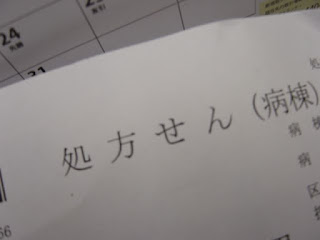 24
31
処方せん(病棟)
処
病棟
病
区
66